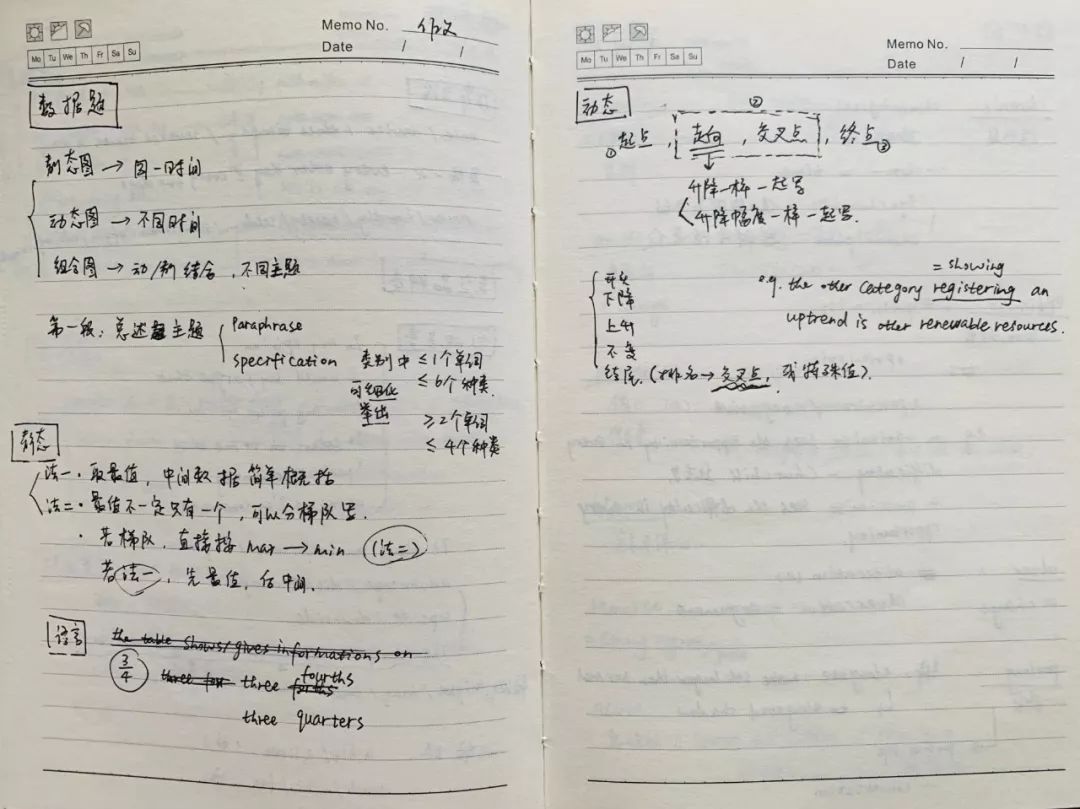 Memo No. 作文
Mo Tu We Th Fr Sa Su
Date / /
数据题
静态图 → 同一时间
动态图 → 不同时间
组合图 → 动/静结合，不同主题
第一段：总述 主题
Paraphrase
Specification
类别中 ≤1个单词
≤6个种类.
可细化
举出
≥2个单词
≤4个种类
静态
法一·取最值，中间数据简单概括
法二·最值不一定只有一个，可以分梯队写.
·若梯队，直接按 max → min (法二)
若法一，先最值，后中间.
语言
the table shows/gives informations on
3/4 three four three fourths
three quarters
Mo Tu We Th Fr Sa Su
Memo No.
Date / /
动态
②
①起点，走向，交叉点，终点③
升降一样一起写
升降幅度一样一起写.
开头
下降
上升
不变
结尾.(排名→交叉点，或特殊值).
= showing
e.g. the other category registering an
uptrend is other renewable resources.